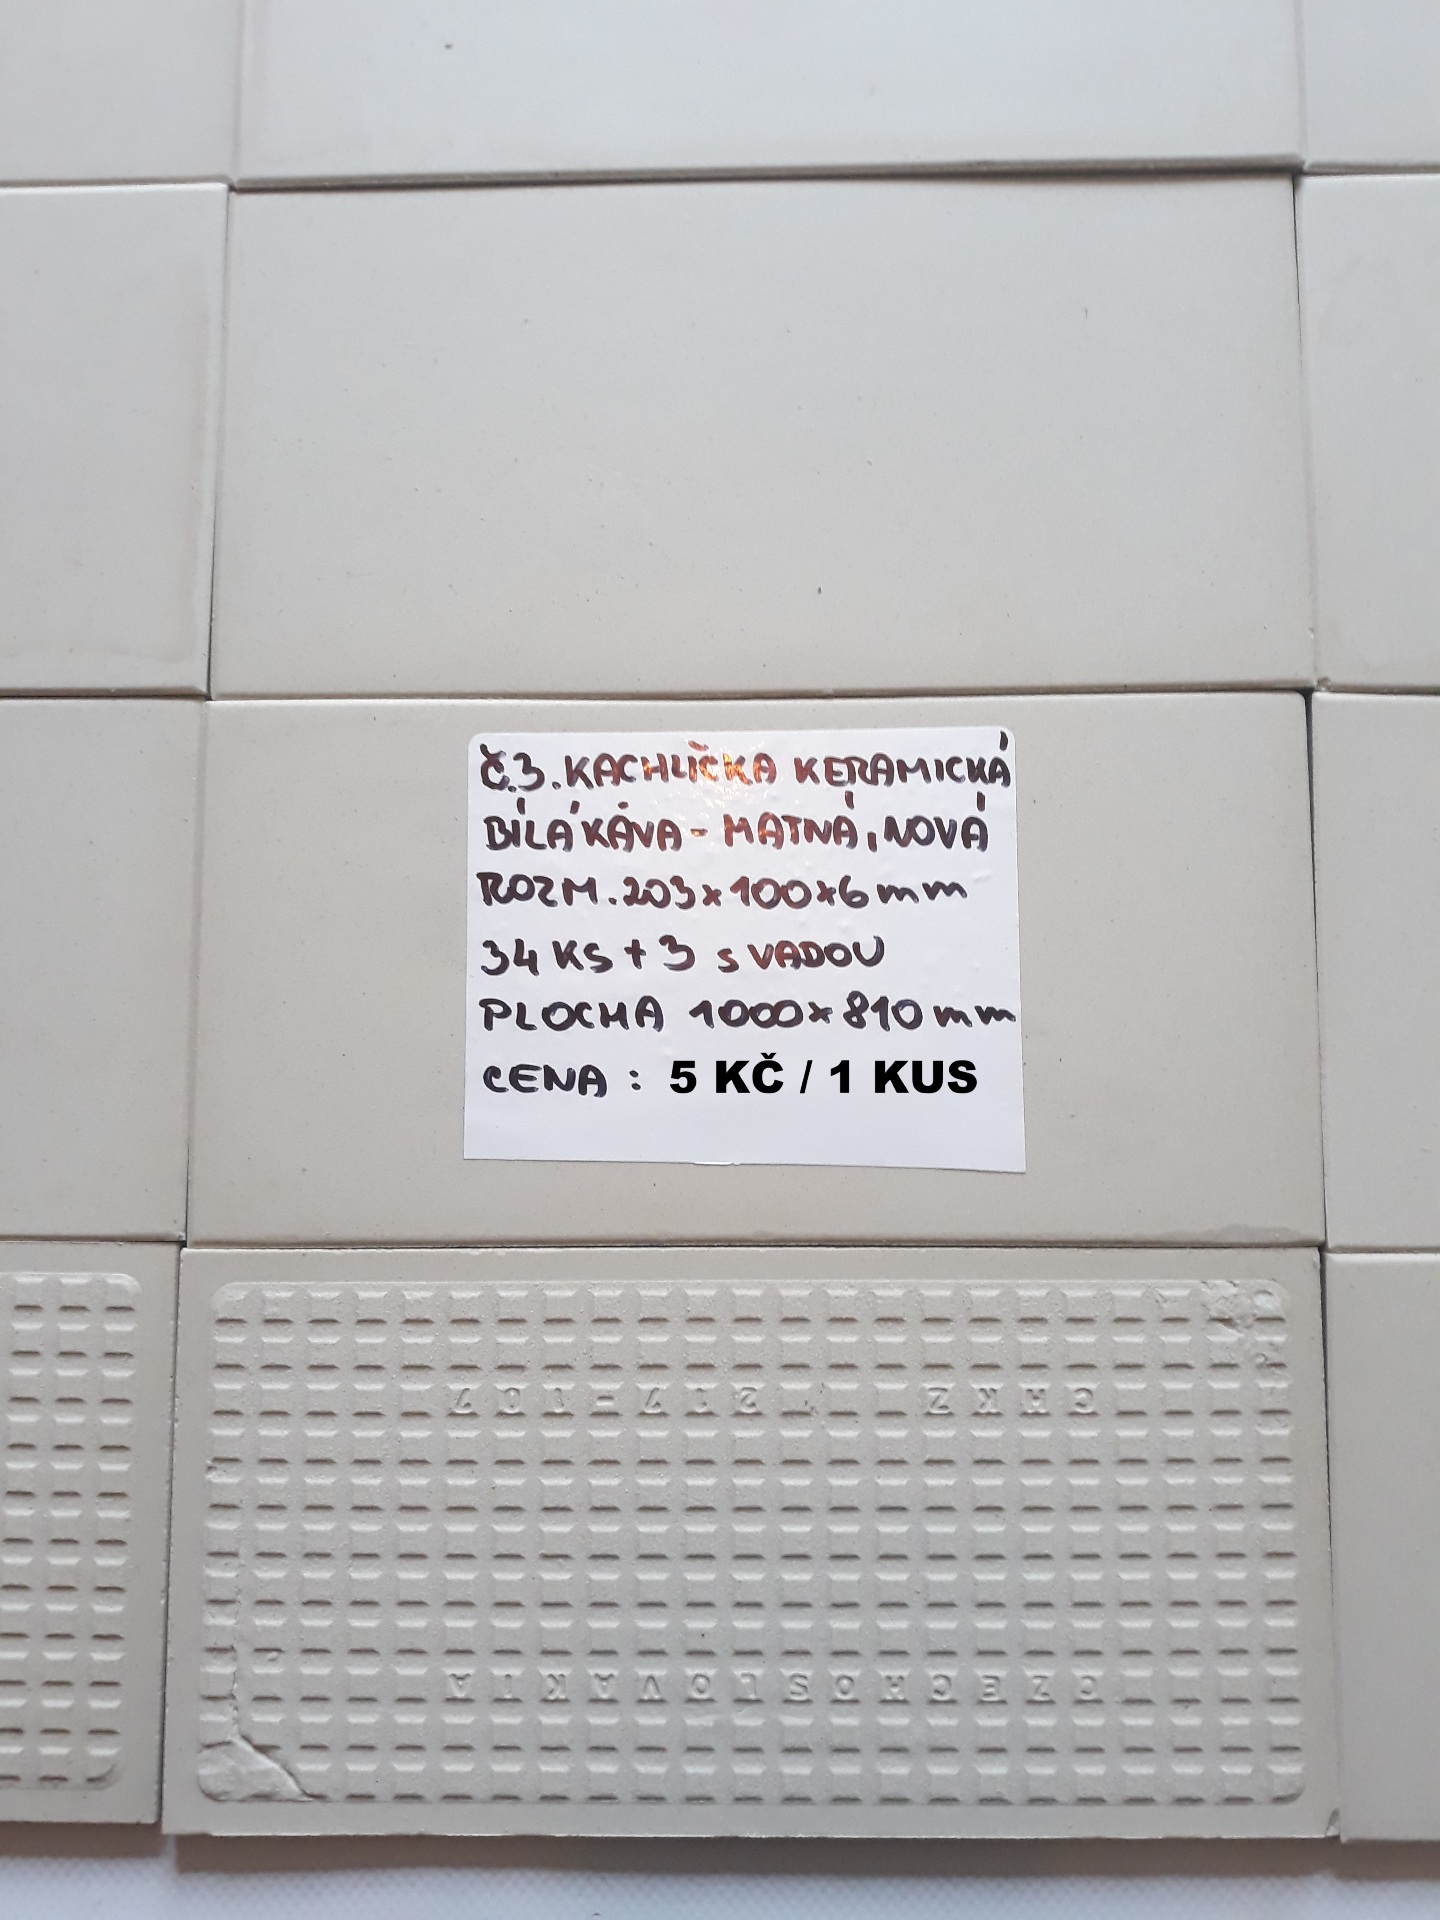 Č.3. KACHLIČKA KERAMICKÁ
BÍLÁ KÁVA - MATNÁ, NOVÁ
ROZM. 203x100x6 mm
34 KS + 3 s VADOU
PLOCHA 1000x810 mm
CENA : 5 KČ / 1 KUS
CZECHOSLOVAKIA
CHKZ 217-187